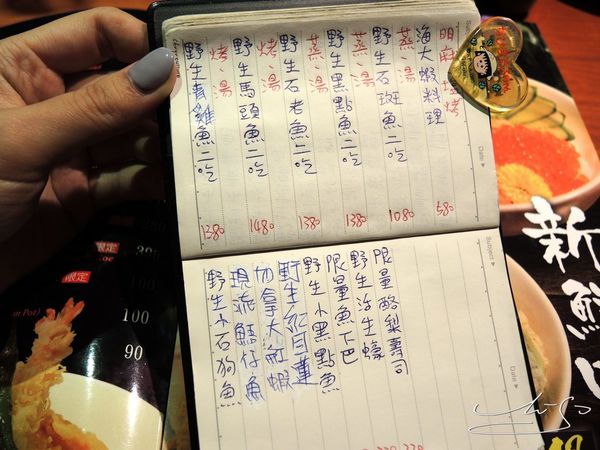 明麻、塩烤
海大蝦料理
580
蒸、湯
野生石斑魚二吃
1080
蒸、湯
野生黑點魚二吃
1380
蒸、湯
野生石老魚二吃
1380
烤、湯
野生馬頭魚二吃
1480
烤、湯
野生青雞魚二吃
1380
限量酪梨壽司
野生活生蠔
限量魚下巴
野生小黑點魚
野生紅目蓮
加拿大紅蝦
現流魷仔魚
野生小石狗魚
Date
Date
限定
300
限定
100
90
新鮮